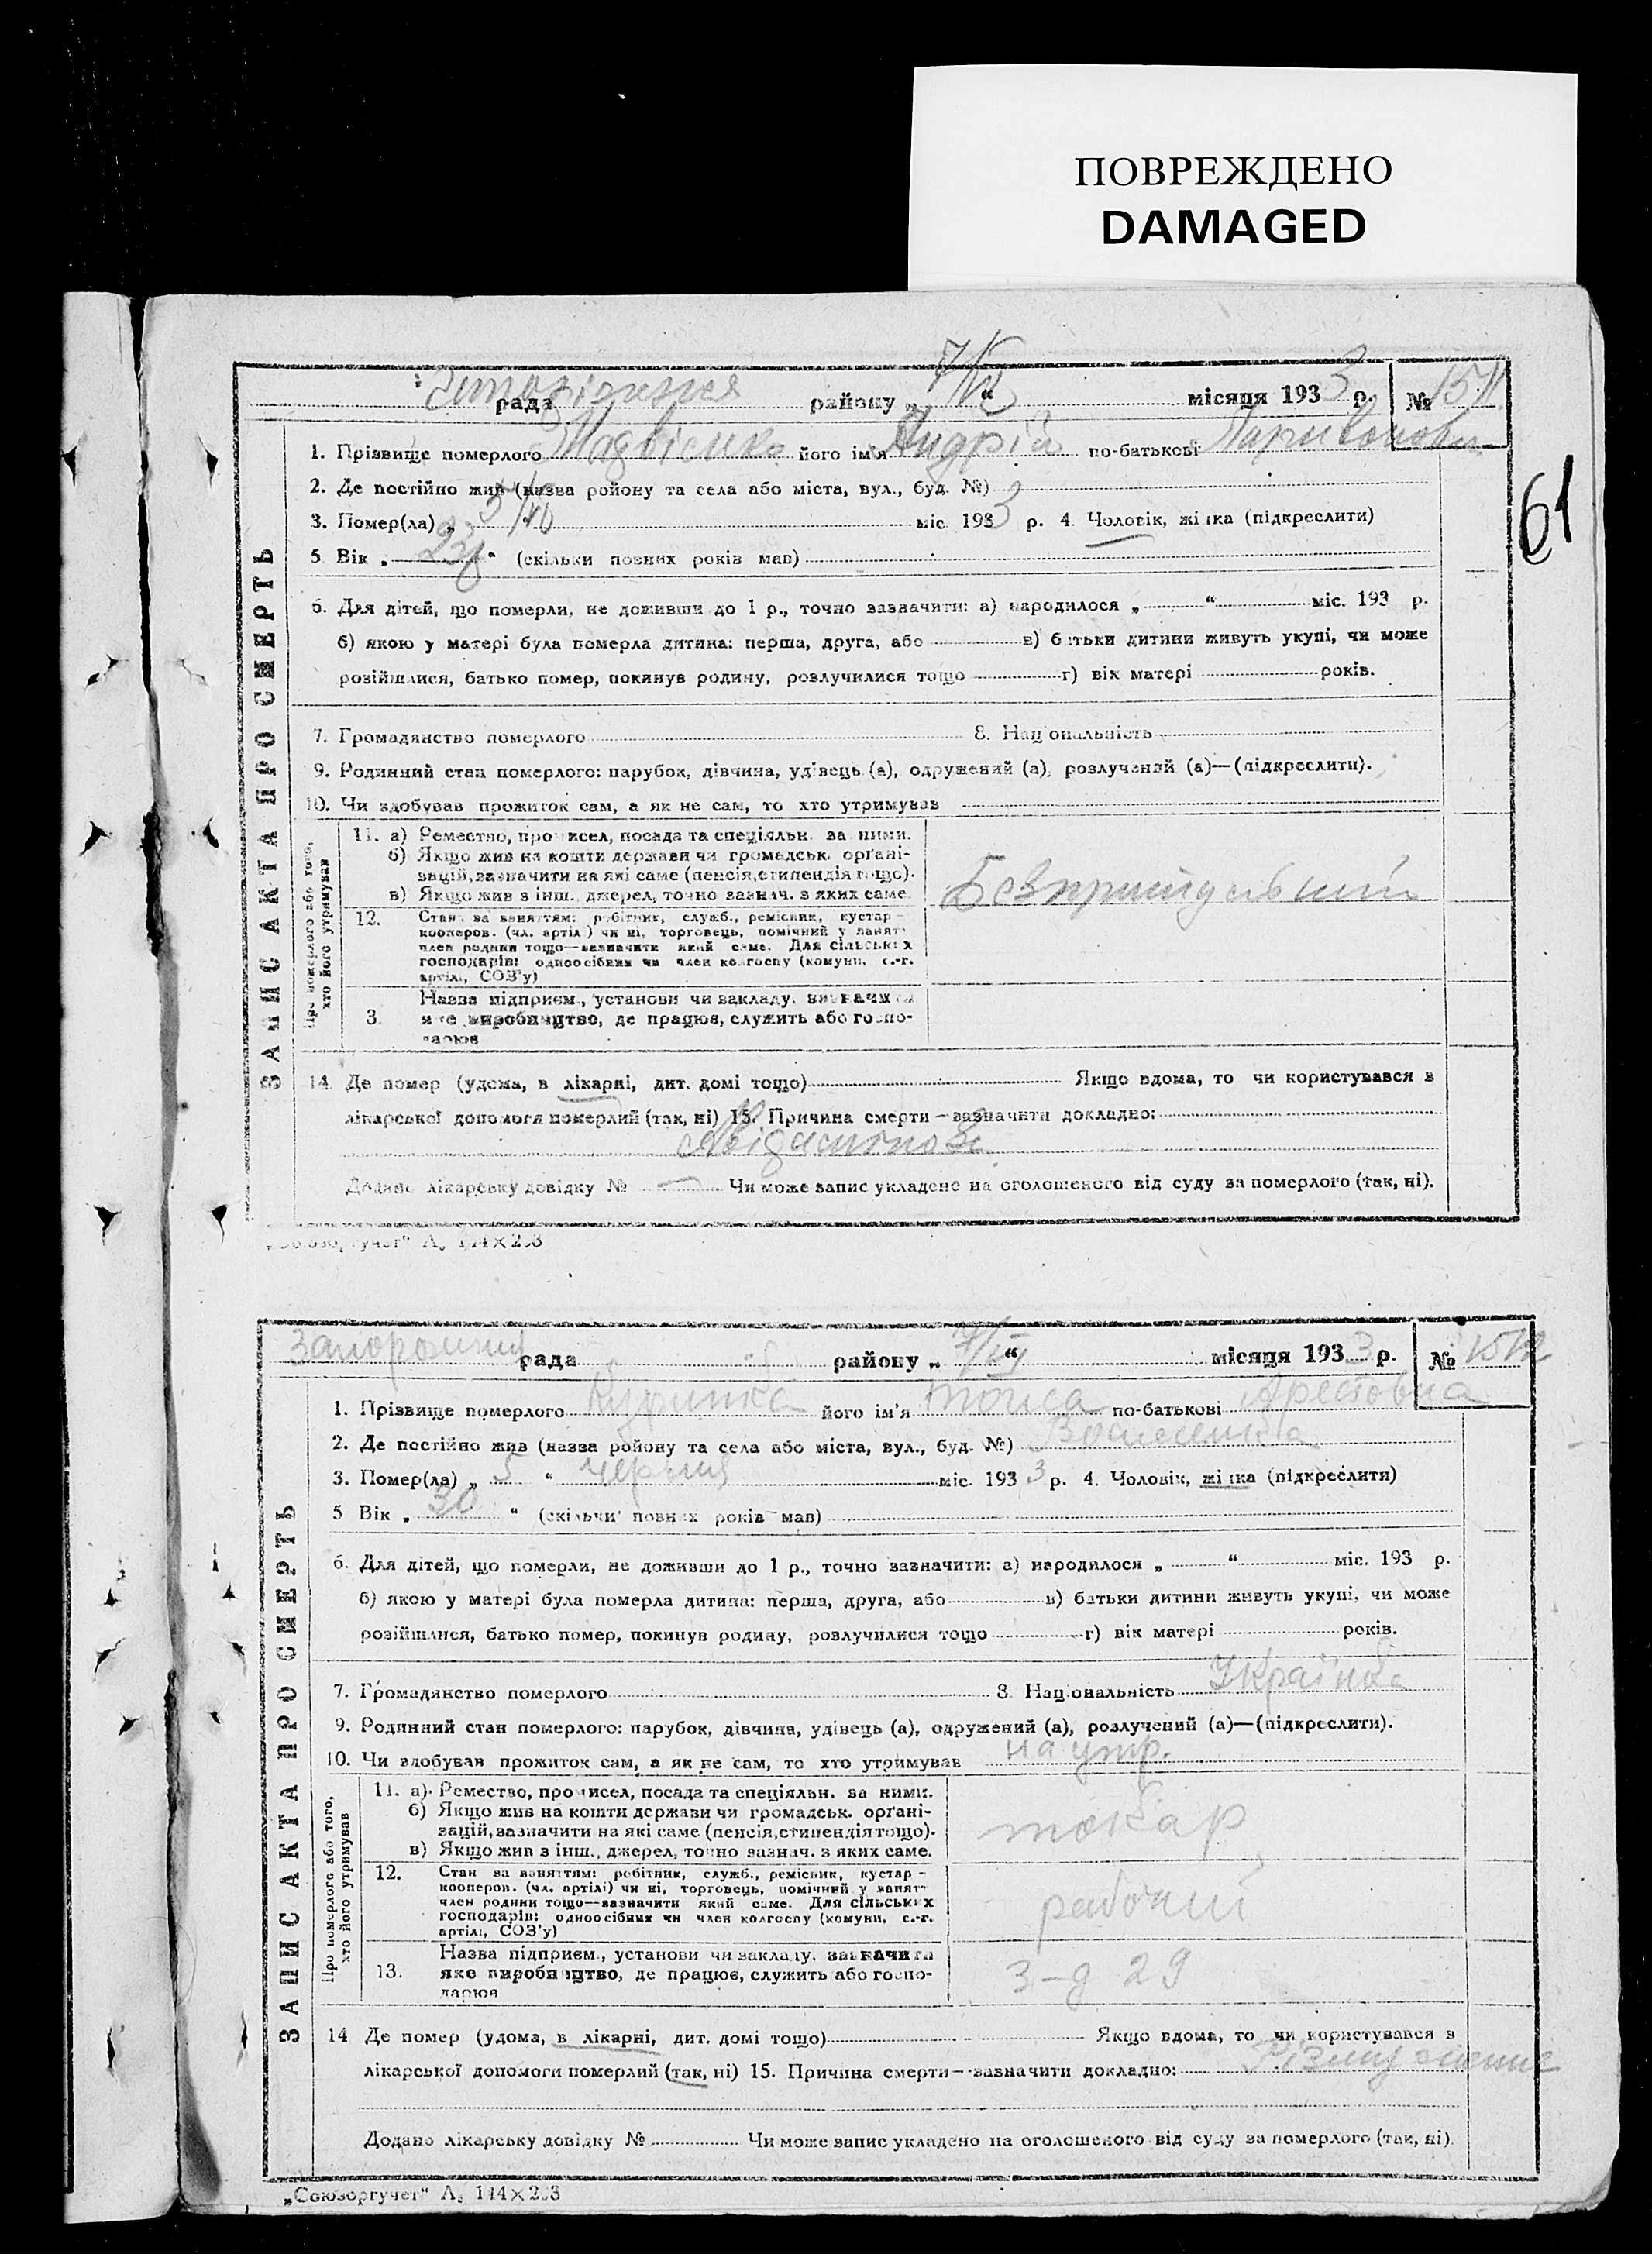 ПОВРЕЖДЕНО
DAMAGED
61
рада району „ 7/VI “ місяця 1933 р. №
ЗАПИС АКТА ПРО СМЕРТЬ
1. Прізвище померлого його ім'я Андрій по-батькові
2. Де постійно жив (назва ройону та села або міста, вул., буд. №)
3. Помер(ла) „ 5/VI “ міс. 1933 р. 4. Чоловік, жінка (підкреслити)
5. Вік „ “ (скільки повних років мав)
6. Для дітей, що померли, не доживши до 1 р., точно зазначити: а) народилося „ “ міс. 193 р.
б) якою у матері була померла дитина: перша, друга, або в) батьки дитини живуть укупі, чи може
розійшлися, батько помер, покинув родину, розлучилися тощо г) вік матері років.
7. Громадянство померлого 8. Національність
9. Родинний стан померлого: парубок, дівчина, удівець (а), одружений (а), розлучений (а)—(підкреслити).
10. Чи здобував прожиток сам, а як не сам, то хто утримував
Про померлого або того, хто його утримував
11. а) Ремество, промисел, посада та спеціяльн. за ними.
б) Якщо жив на кошти держави чи громадськ. органі-
зацій, зазначити на які саме (пенсія, стипендія тощо).
в) Якщо жив з інш. джерел, точно зазнач. з яких саме.
12. Стан за заняттям: робітник, служб., ремісник, кустар-
кооперов. (чл. артілі) чи ні, торговець, помічний у занят-
член родини тощо—зазначити який саме. Для сільських
господарів: одноосібник чи член колгоспу (комуни, с.-г.
артілі, СОЗ'у)
3. Назва підприєм., установи чи закладу, зазначити
яке виробництво, де працює, служить або госпо-
дарює
14. Де помер (удома, в лікарні, дит. домі тощо) Якщо вдома, то чи користувався з
лікарської допомоги померлий (так, ні) 15. Причина смерти — зазначити докладно:
Додано лікарську довідку № — Чи може запис укладено на оголошеного від суду за померлого (так, ні).
„Союзоргучет“ А₅ 144×203
рада району „ 7/VI “ місяця 1933 р. № 1512
ЗАПИС АКТА ПРО СМЕРТЬ
1. Прізвище померлого його ім'я по-батькові
2. Де постійно жив (назва ройону та села або міста, вул., буд. №)
3. Помер(ла) „ 5 “ червня міс. 1933 р. 4. Чоловік, жінка (підкреслити)
5 Вік „ 30 “ (скільки повних років мав)
6. Для дітей, що померли, не доживши до 1 р., точно зазначити: а) народилося „ “ міс. 193 р.
б) якою у матері була померла дитина: перша, друга, або в) батьки дитини живуть укупі, чи може
розійшлися, батько помер, покинув родину, розлучилися тощо г) вік матері років.
7. Громадянство померлого 8. Національність Українка
9. Родинний стан померлого: парубок, дівчина, удівець (а), одружений (а), розлучений (а)—(підкреслити).
10. Чи здобував прожиток сам, а як не сам, то хто утримував на утр.
Про померлого або того, хто його утримував
11. а) Ремество, промисел, посада та спеціяльн. за ними.
б) Якщо жив на кошти держави чи громадськ. органі-
зацій, зазначити на які саме (пенсія, стипендія тощо).
в) Якщо жив з інш., джерел, точно зазнач. з яких саме.
токар
12. Стан за заняттям: робітник, служб., ремісник, кустар-
кооперов. (чл. артілі) чи ні, торговець, помічний у занят-
член родини тощо—зазначити який саме. Для сільських
господарів: одноосібник чи член колгоспу (комуни, с.-г.
артілі, СОЗ'у)
рабочий
13. Назва підприєм., установи чи закладу, зазначити
яке виробництво, де працює, служить або госпо-
дарює
з-д 29
14 Де помер (удома, в лікарні, дит. домі тощо) Якщо вдома, то чи користувався з
лікарської допомоги померлий (так, ні) 15. Причина смерти — зазначити докладно:
Додано лікарську довідку № Чи може запис укладено на оголошеного від суду за померлого (так, ні)
„Союзоргучет“ А₅ 144×203